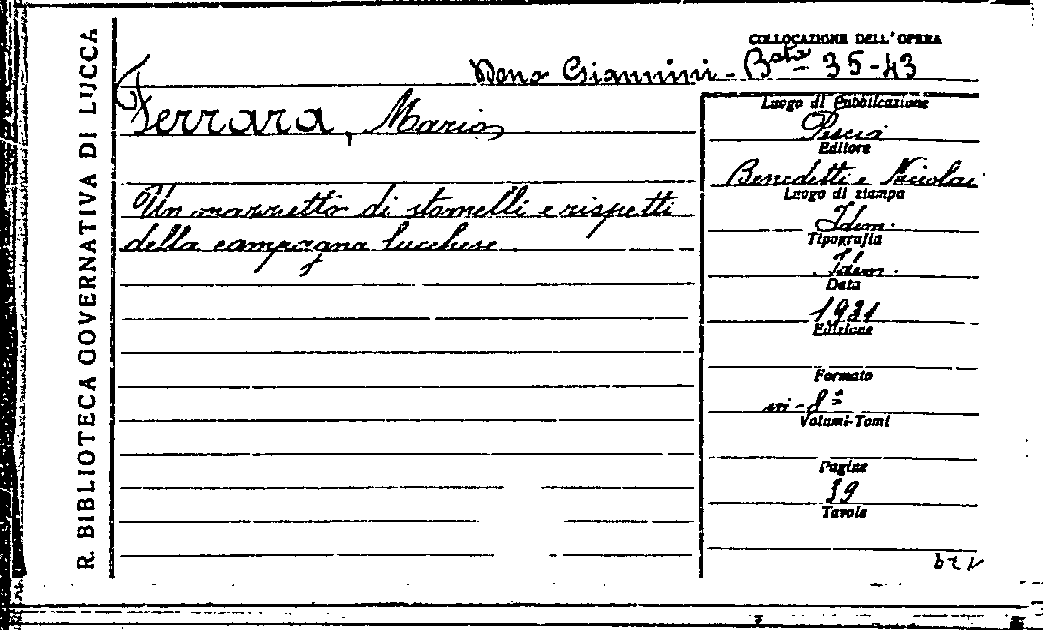 R. BIBLIOTECA GOVERNATIVA DI LUCCA
COLLOCAZIONE DELL'OPERA
Dono Giannini - Bsta 35-43
Ferrara, Mario
Un mazzetto di stornelli e rispetti
della campagna lucchese
Luogo di Pubblicazione
Pescia
Editore
Benedetti e Niccolai
Luogo di stampa
Idem.
Tipografia
Idem.
Data
1921
Edizione
Formato
in-8º
Volumi-Tomi
Pagine
39
Tavole